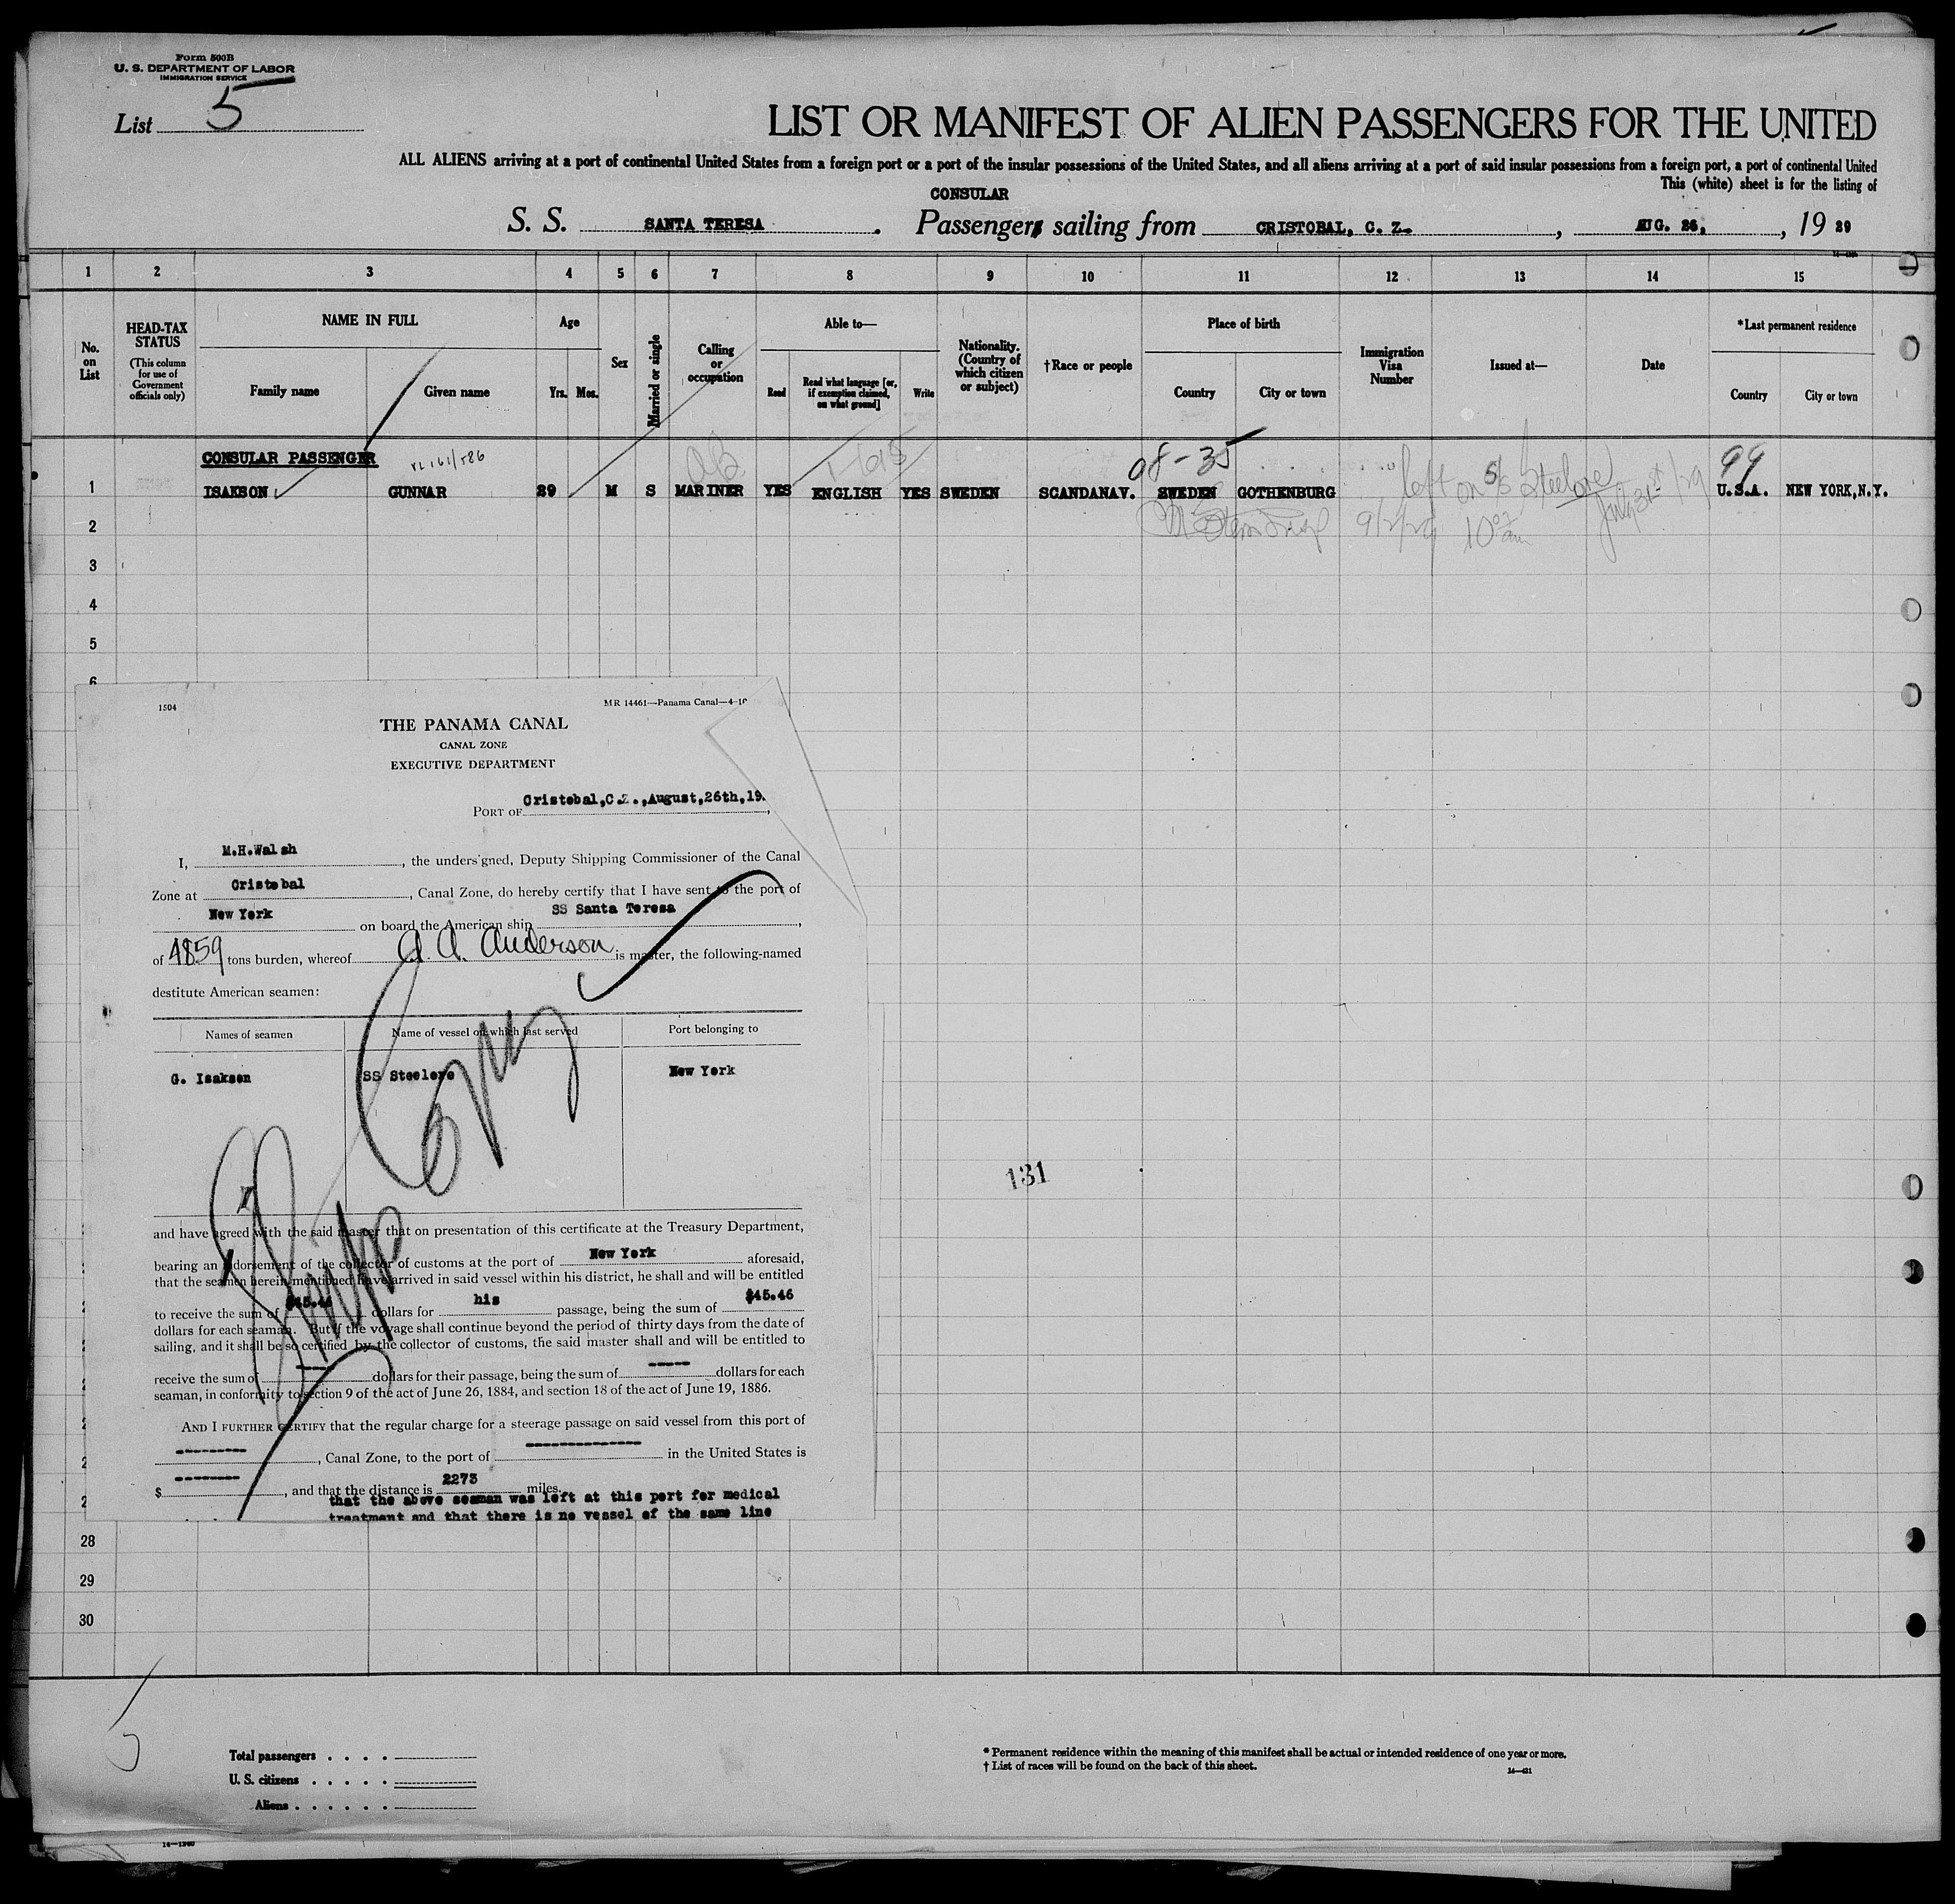 Form 500B
U. S. DEPARTMENT OF LABOR
IMMIGRATION SERVICE
List 5
LIST OR MANIFEST OF ALIEN PASSENGERS FOR THE UNITED
ALL ALIENS arriving at a port of continental United States from a foreign port or a port of the insular possessions of the United States, and all aliens arriving at a port of said insular possessions from a foreign port, a port of continental United
This (white) sheet is for the listing of
CONSULAR
S. S. SANTA TERESA. Passengers sailing from CRISTOBAL, C. Z., AUG. 26, 1929
1 2 3 4 5 6 7 8 9 10 11 12 13 14 15
No. on List
HEAD-TAX STATUS
(This column for use of Government officials only)
NAME IN FULL
Family name Given name
Age
Yrs. Mos.
Sex
Married or single
Calling or occupation
Able to—
Read Read what language [or, if exemption claimed, on what ground] Write
Nationality. (Country of which citizen or subject)
†Race or people
Place of birth
Country City or town
Immigration Visa Number
Issued at—
Date
*Last permanent residence
Country City or town
CONSULAR PASSENGER
08-35 99
1 ISAKSON GUNNAR 29 M S MARINER YES ENGLISH YES SWEDEN SCANDANAV. SWEDEN GOTHENBURG left on S/S Steelore July 31st/29 U.S.A. NEW YORK,N.Y.
9/2/29 10 am
2
3
4
5
6
1504
MR 14461—Panama Canal—4-
THE PANAMA CANAL
CANAL ZONE
EXECUTIVE DEPARTMENT
PORT OF Cristobal,C.Z.,August,26th,19
I, M.H.Walsh, the undersigned, Deputy Shipping Commissioner of the Canal
Zone at Cristobal, Canal Zone, do hereby certify that I have sent to the port of
New York on board the American ship SS Santa Teresa,
of 4859 tons burden, whereof A. A. Anderson is master, the following-named
destitute American seamen:
Names of seamen Name of vessel on which last served Port belonging to
G. Isaksen SS Steelore New York
Ships Copy
and have agreed with the said master that on presentation of this certificate at the Treasury Department,
bearing an indorsement of the collector of customs at the port of New York aforesaid,
that the seamen herein mentioned have arrived in said vessel within his district, he shall and will be entitled
to receive the sum of $45.46 dollars for his passage, being the sum of $45.46
dollars for each seaman. But if the voyage shall continue beyond the period of thirty days from the date of
sailing, and it shall be so certified by the collector of customs, the said master shall and will be entitled to
receive the sum of ---- dollars for their passage, being the sum of ----- dollars for each
seaman, in conformity to section 9 of the act of June 26, 1884, and section 18 of the act of June 19, 1886.
AND I FURTHER CERTIFY that the regular charge for a steerage passage on said vessel from this port of
---------, Canal Zone, to the port of --------------- in the United States is
$ --------, and that the distance is 2273 miles.
that the above seaman was left at this port for medical
treatment and that there is no vessel of the same line
131
28
29
30
5
Total passengers . . . .
U. S. citizens . . . . .
Aliens . . . . . .
* Permanent residence within the meaning of this manifest shall be actual or intended residence of one year or more.
† List of races will be found on the back of this sheet.